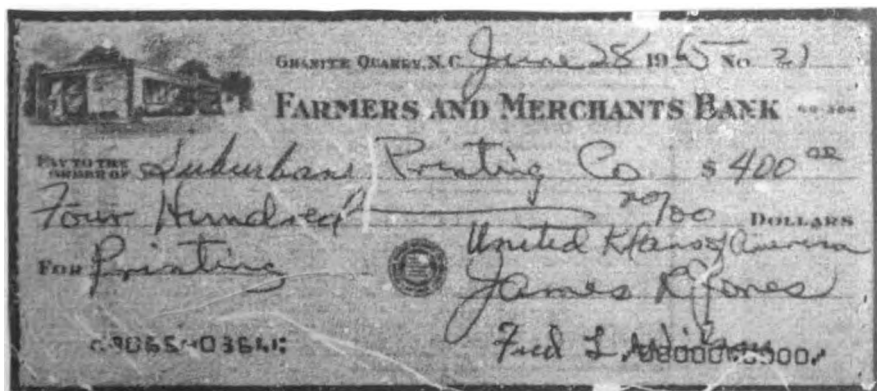 GRANITE QUARRY, N.C. June 28 1965 No. 21
FARMERS AND MERCHANTS BANK
PAY TO THE ORDER OF Suburban Printing Co $ 400 00
Four Hundred no/00 DOLLARS
United Klans of America
FOR Printing
James R. Jones
Fred L. Wilson